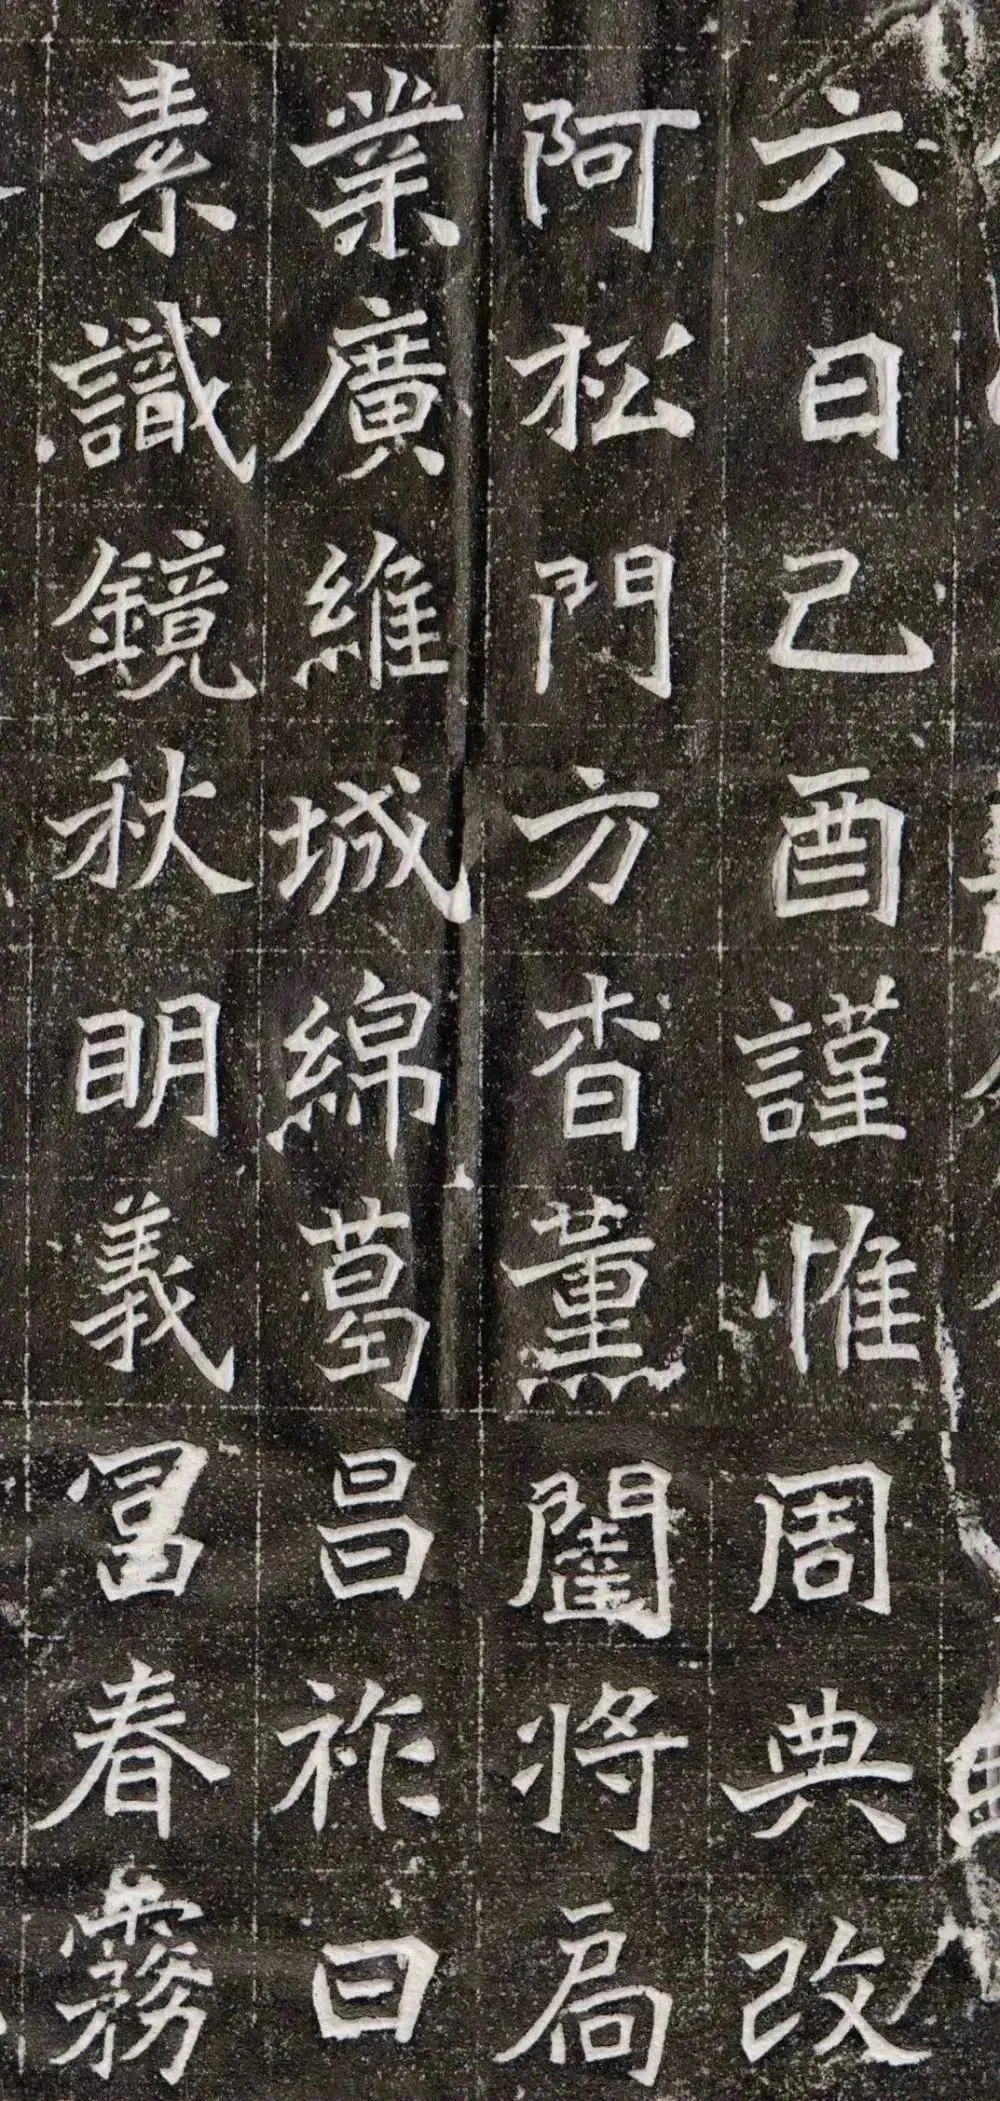 六日己酉謹惟周典改
阿松門方杳薰閨將扃
業廣維城綿葛昌祚曰
素識鏡秋眀義冨春霧